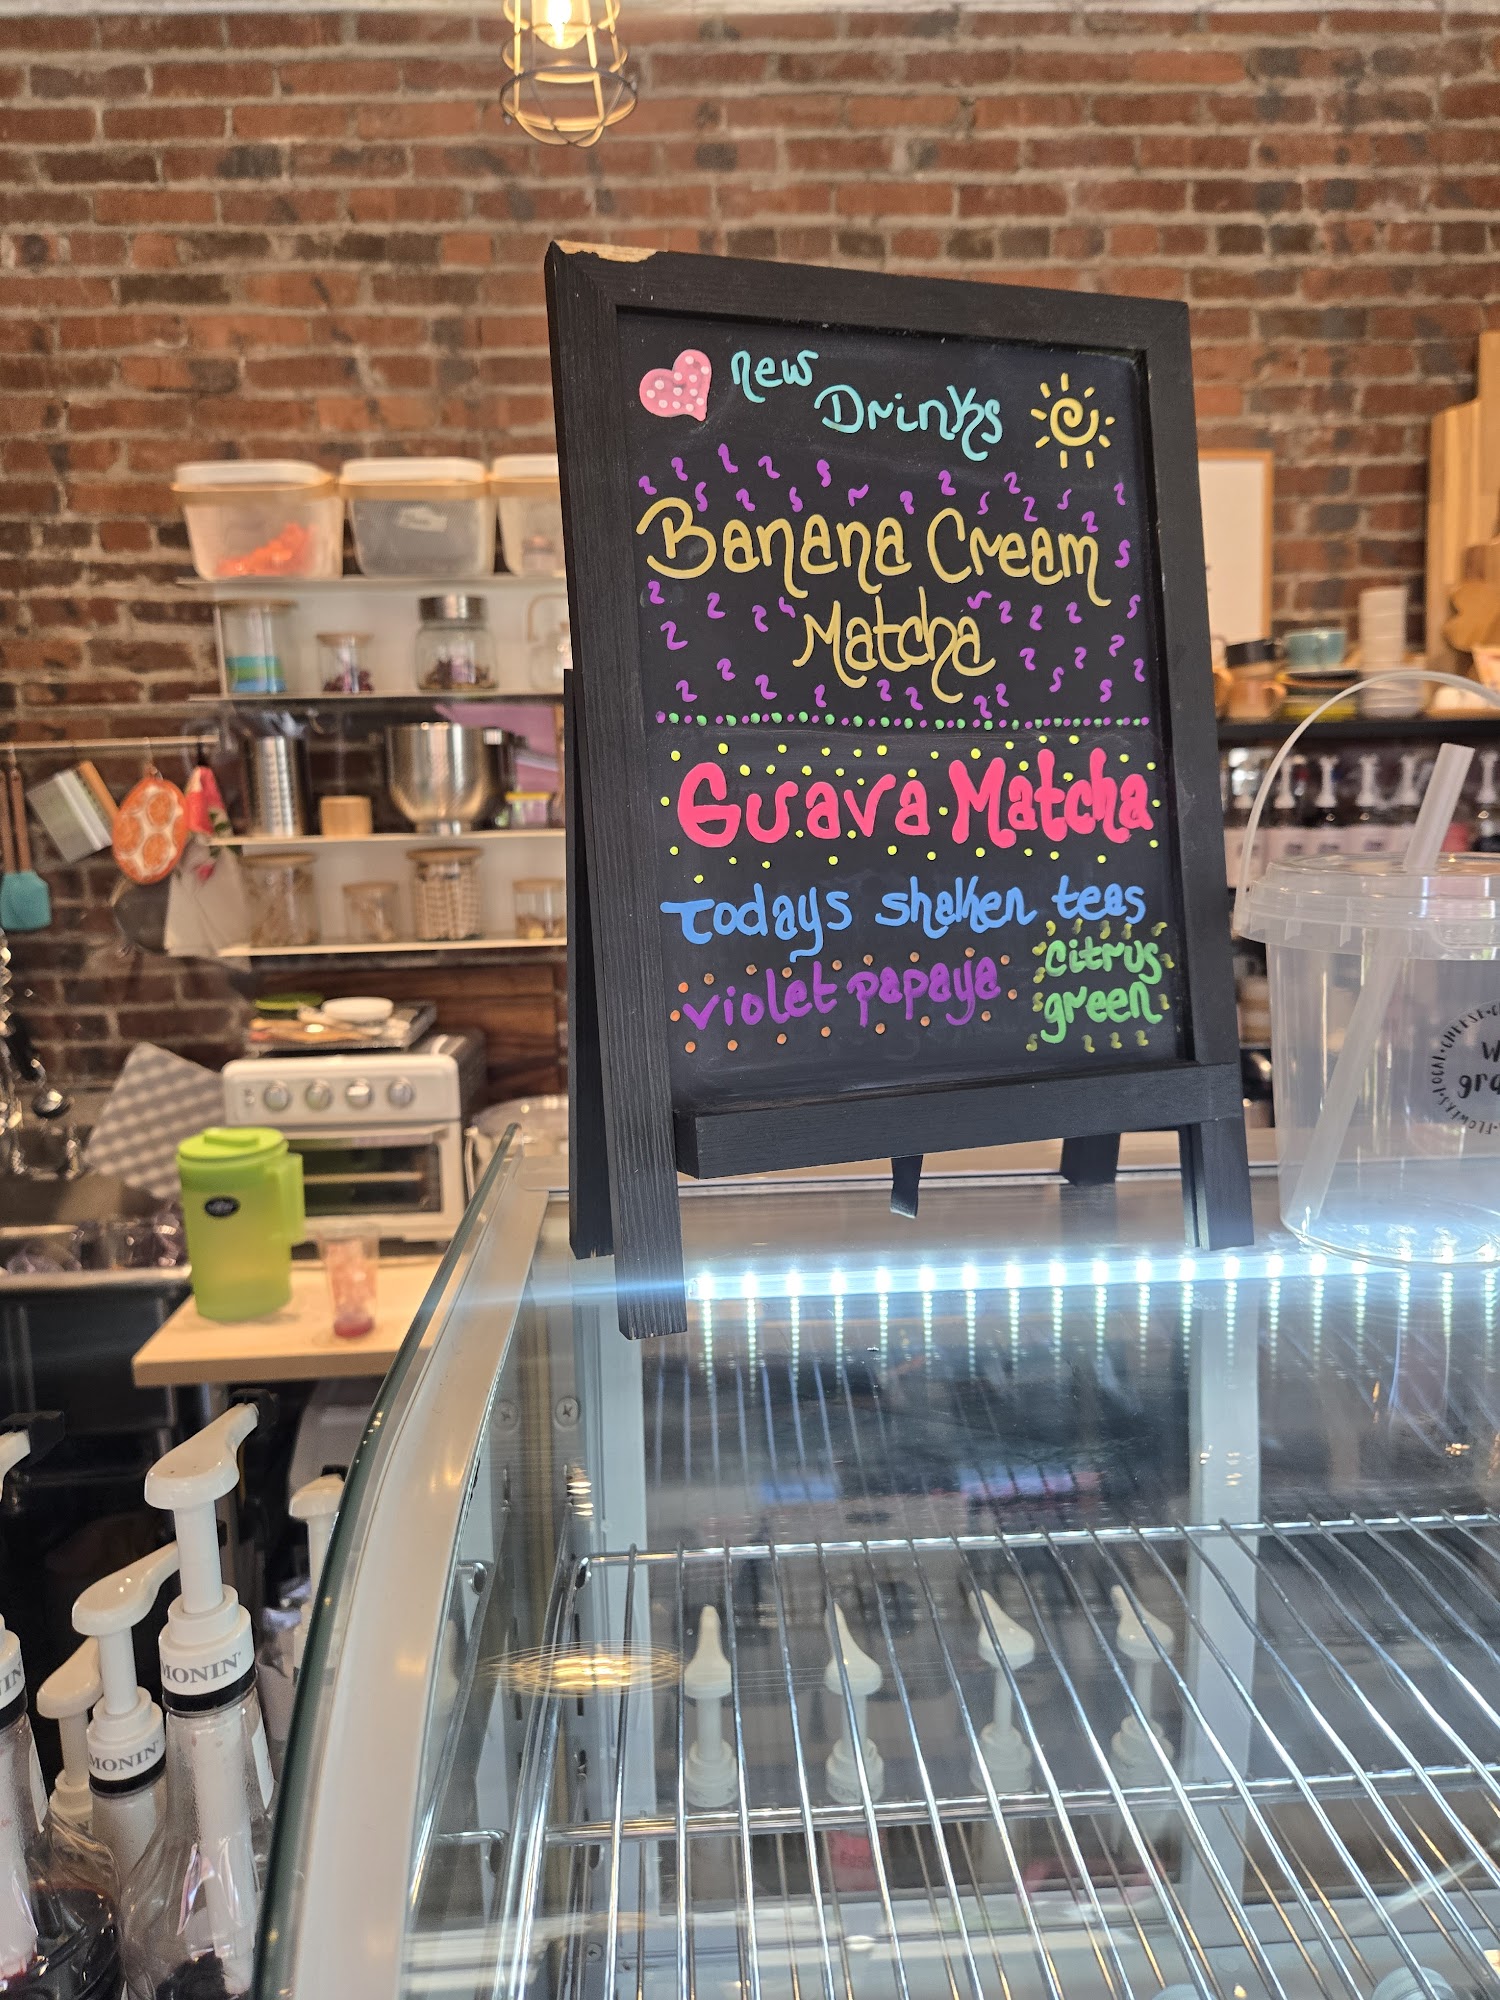 new
Drinks
Banana Cream
Matcha
Guava Matcha
Todays shaken teas
violet papaya
citrus
green
MONIN
MONIN